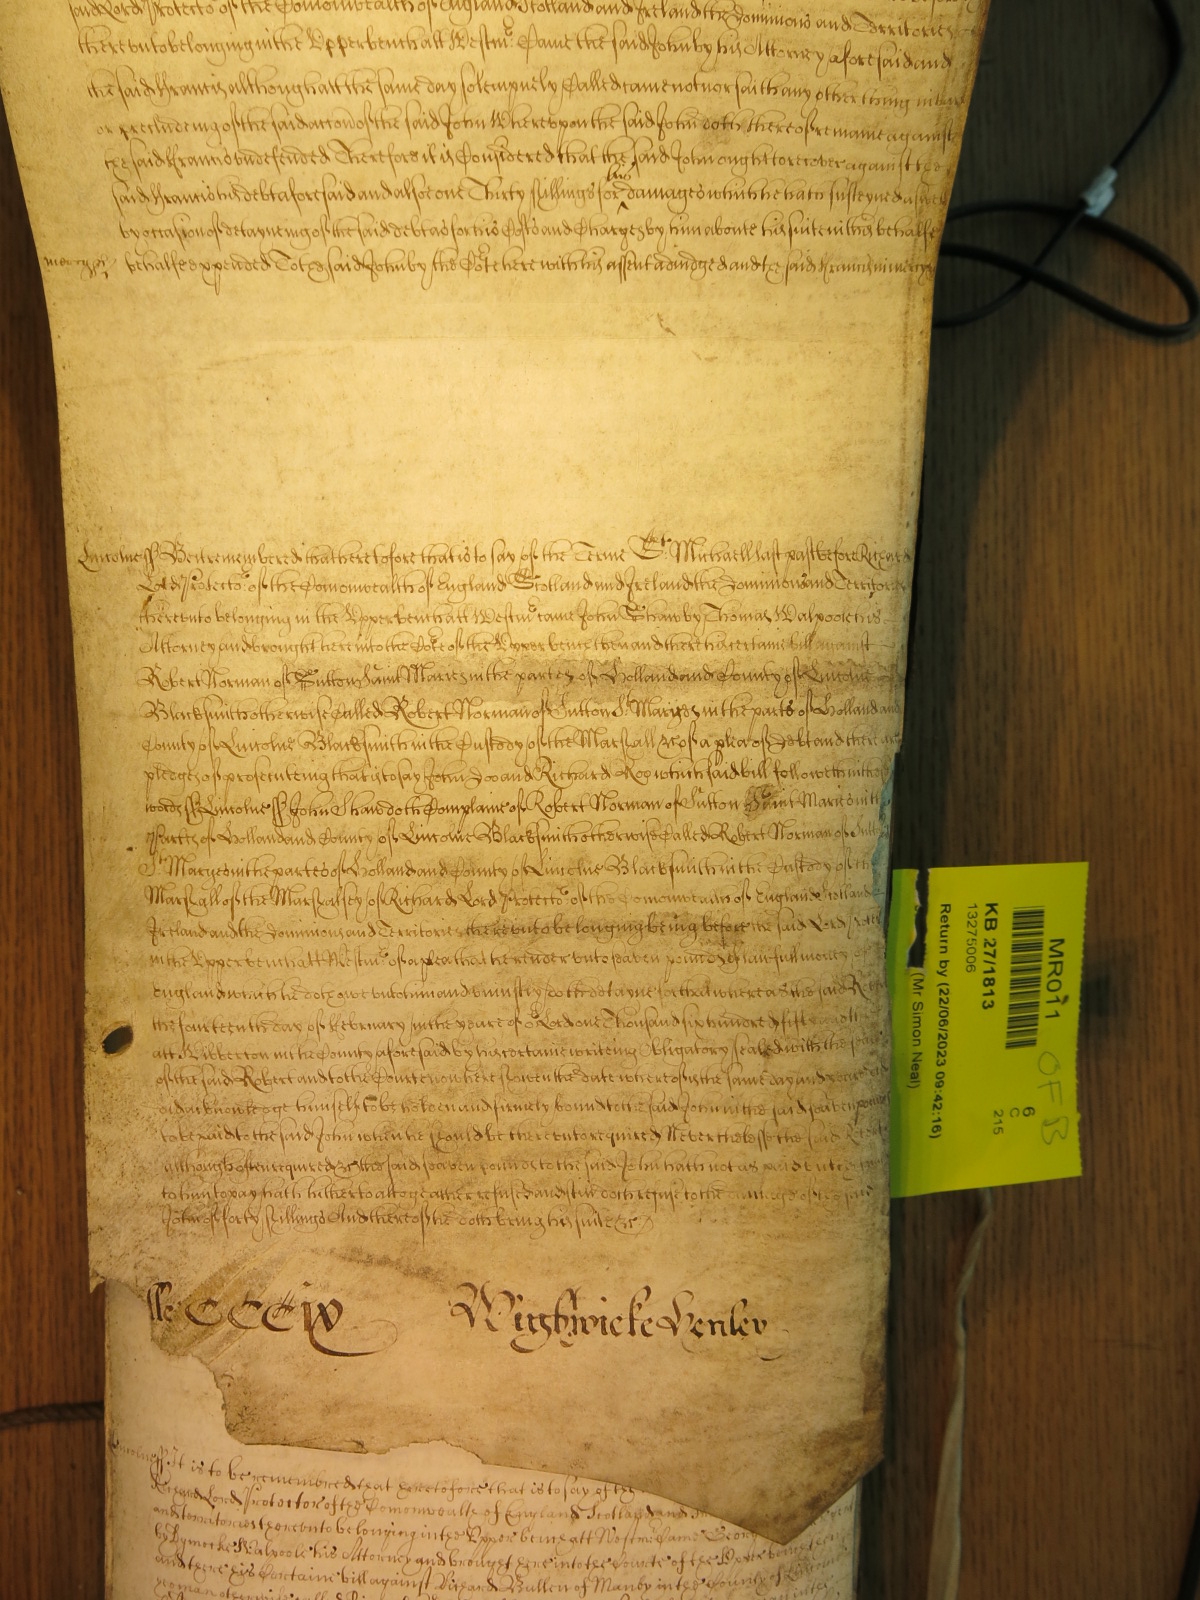 said Lord Protector of the Comonwealth of England Scotland and Ireland the Dominions and Territories
thereunto belonging in the Upper bench att Westmr. Came the said John by his Attorney aforesaid and
the said Francis although att the same day solempnely Called came not nor saith any other thing in barr
or precludeing of the said accon of the said John Whereupon the said John doth thereof remaine against
the said Francis undefended Therefore it is Considered that the said John ought to recover against the
said Francis his debt aforesaid and alsoe one Thirty shillings for his damages which he hath susteyned aswell
by occasion of deteyneing of the said debt as for his Costs and Charges by him aboute his suite in this behalfe
mercy behalfe expended To the said John by the Cote here with his assent adiudged and the said Francis in mercy
Lincolne ss Be it remembered that heretofore that is to say of the Terme St. Michaell last past before Richard
Lord Protector of the Comonwealth of England Scotland and Ireland the Dominions and Territories
thereunto belonging in the Upper bench att Westmr came John Shaw by Thomas Walpoole his
Attorney and brought here into the Cote of the Upper bench then and there his certaine bill against
Robert Norman of Sutton Saint Maries in the partes of Holland and County of Lincolne
Blacksmith otherwise Called Robert Norman of Sutton St. Maryes in the parts of Holland and
County of Lincolne Blacksmith in the Custody of the Marshall &c of a plea of Debt and there are
pledges of prosecuteing that is to say John Doo and Richard Roo which said bill followeth in these
words ss Lincolne ss John Shaw doth Complaine of Robert Norman of Sutton Saint Maries in the
Partes of Holland and County of Lincolne Blacksmith otherwise Called Robert Norman of Sutton
St. Maryes in the partes of Holland and County of Lincolne Blacksmith in the Custody of the
Marshall of the Marshalsey of Richard Lord Protector of the Comonwealth of England Scotland
Ireland and the Dominions and Territories thereunto belonging being before the said Lord Protector
in the Upper bench att Westmr. of a plea that he render unto him seaven pounds of lawfull money of
England which he doth owe unto him and uniustly doth deteyne for that whereas the said Robert
the fourteenth day of February in the yeare of or Lord one Thousand six hundred fifty
att in the County aforesaid by his certaine writeing Obligatory sealed with the seale
of the said Robert and to the Courte now here shewen the date whereof is the same day and yeare
did acknowledge himself to be holden and firmely bound to the said John in the said seaven pounds
to be paid to the said John when he should be thereunto required Neverthelesse the said Robert
although often required &c the said seaven pounds to the said John hath not as yet paid
to him to pay hath hitherto altogeather refused and still doth refuse to the damage of the said
John of forty shillings And thereof he doth bring his suite &c
CCCCix Wightwicke Henley
Lincolne ss It is to be remembered that heretofore that is to say of the
Richard Lord Protector of the Comonwealth of England Scotland and
and territories thereunto belonging in the Upper bench att Westmr. Came
by Walpoole his Attorney and brought here into the Courte of the Upper bench then
and there his Certaine bill against Richard Bullen of Manby in the County of Lincolne
yeoman otherwise called
MR011
OFB
6
C
215
KB 27/1813
13275006
Return by (22/06/2023 09:42:16)
(Mr Simon Neal)